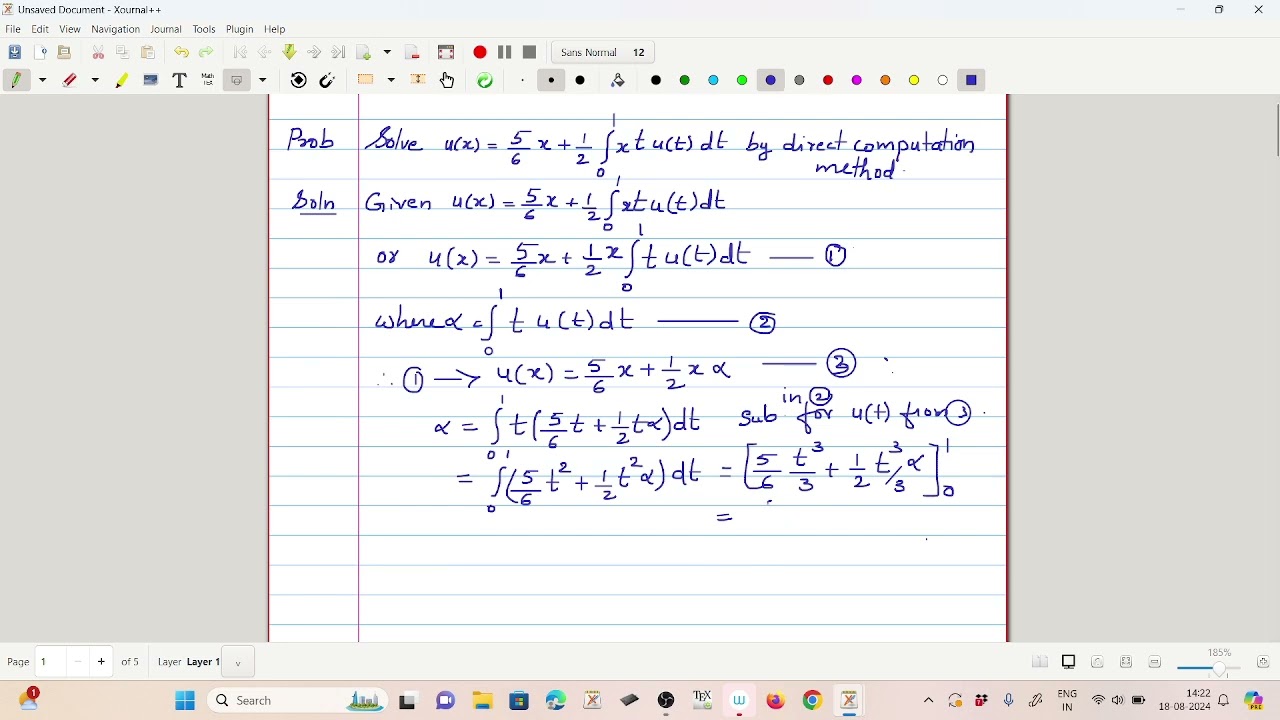 Unsaved Document - Xournal++
File Edit View Navigation Journal Tools Plugin Help
Sans Normal 12
Prob Solve u(x) = 5/6 x + 1/2 ∫₀¹ x t u(t) dt by direct computation
method.
Soln Given u(x) = 5/6 x + 1/2 ∫₀¹ xt u(t) dt
or u(x) = 5/6 x + 1/2 x ∫₀¹ t u(t) dt —— ①
where α = ∫₀¹ t u(t) dt —— ②
∴ ① —> u(x) = 5/6 x + 1/2 x α —— ③
α = ∫₀¹ t(5/6 t + 1/2 tα) dt Sub in ② for u(t) from ③.
= ∫₀¹ (5/6 t² + 1/2 t² α) dt = [5/6 t³/3 + 1/2 t³/3 α]₀¹
=
Page 1 - + of 5 Layer Layer 1 185%
1 Search ENG IN 14:22 18-08-2024